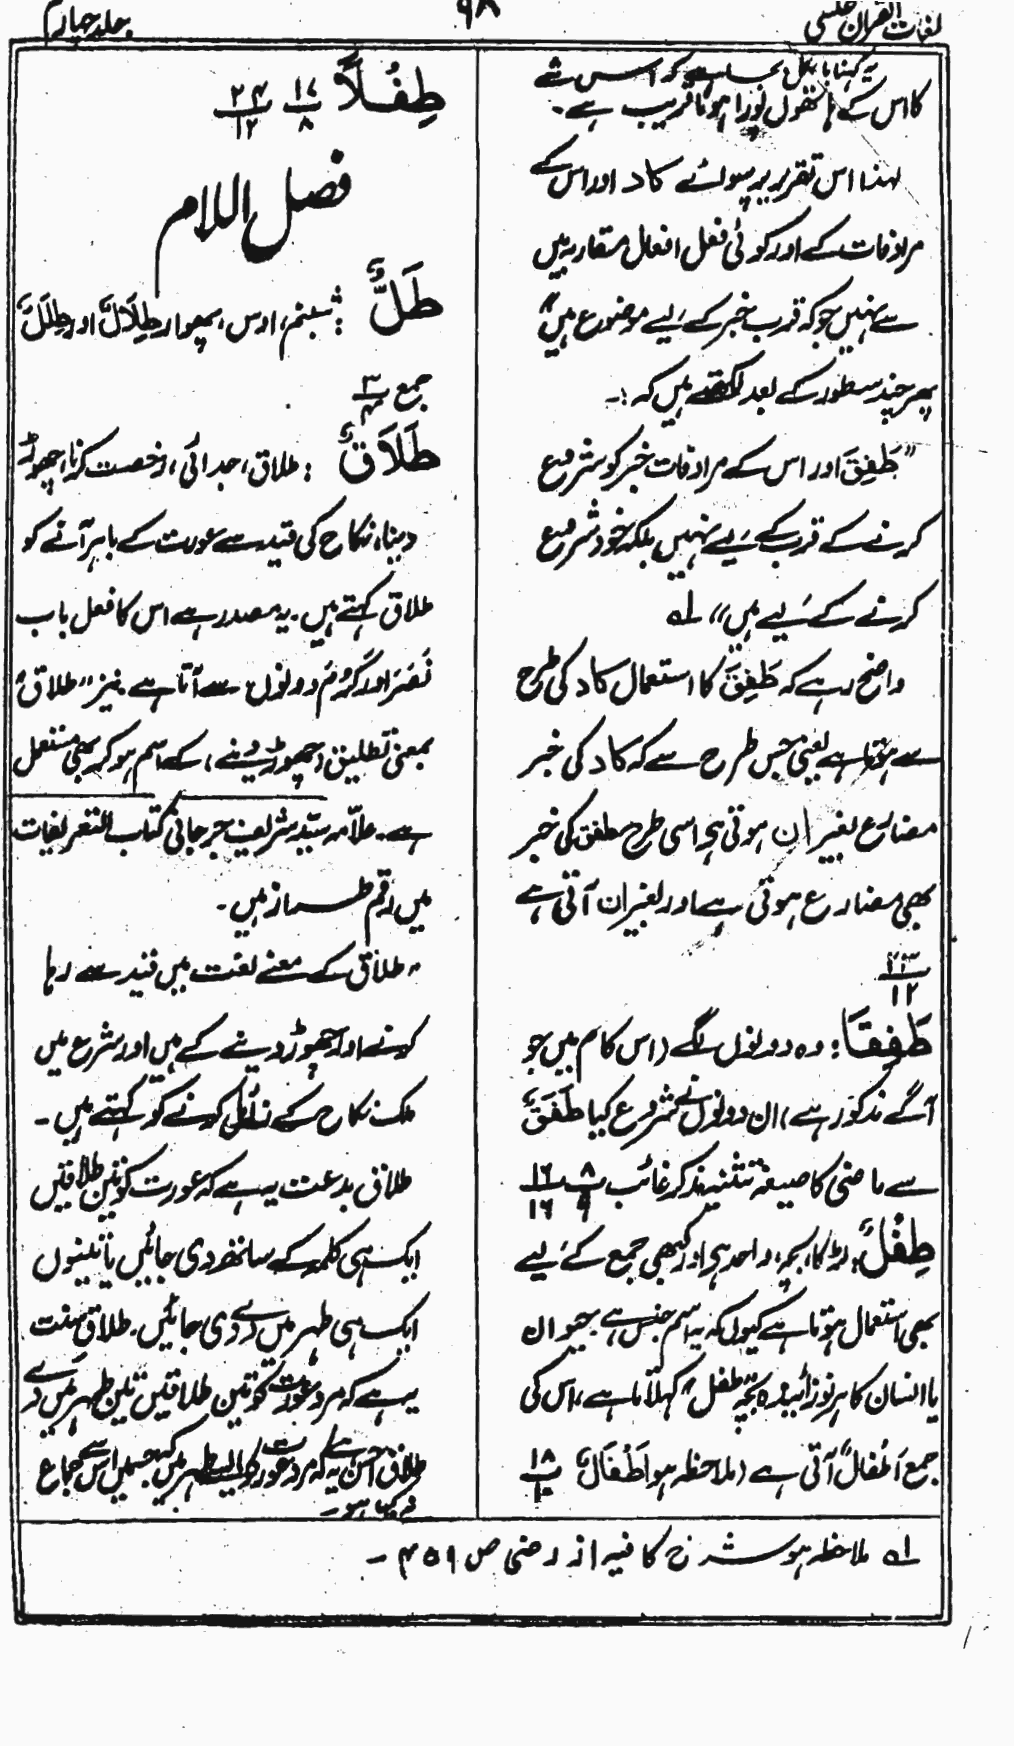 لغات القرآن خلسی
۹۸
جلد چہارم
یہ کہنا بالکل بجا ہے کہ اس شے
کا اس کے ہاتھوں پورا ہونا قریب ہے۔
لہذا اس تقریر پر سوائے کاد اور اس کے
مرادفات کے اور کوئی فعل افعال مقاربہ میں
سے نہیں جو کہ قرب خبر کے لیے موضوع ہیں"
پھر چند سطور کے بعد لکھتے ہیں کہ :۔
"طَفِقَ اور اس کے مرادفات خبر کو شروع
کرنے کے قرب کے لیے نہیں بلکہ خود شروع
کرنے کے لیے ہیں" لہ
واضح رہے کہ طَفِقَ کا استعمال کاد کی طرح
سے ہوتا ہے یعنی جس طرح سے کہ کاد کی خبر
مضارع بغیر ان ہوتی ہے اسی طرح طفق کی خبر
بھی مضارع ہوتی ہے اور بغیر ان آتی ہے
۲۳
۱۲
طَفِقَا : وہ دونوں لگے (اس کام میں جو
آگے مذکور ہے) ان دونوں نے شروع کیا طَفَقٌ
سے ماضی کا صیغہ تثنیہ مذکر غائب ۸/۹ ۱۶/۱۶
طِفْلٌ : لڑکا، بچہ، واحد ہے اور کبھی جمع کے لیے
بھی استعمال ہوتا ہے کیوں کہ یہ اسم جنس ہے۔ حیوان
یا انسان کا ہر نوزائیدہ بچہ "طفل" کہلاتا ہے، اس کی
جمع اَطْفَالٌ آتی ہے (ملاحظہ ہو اَطْفَالٌ) ۱۸/۱۰
طِفْلًا ۱۷/۸ ۲۴/۱۲
فصل اللام
طَلٌّ : شبنم، اوس، پھوار طِلَالٌ اور طِلَلٌ
جمع ۳/۴
طَلَاقٌ : طلاق، جدائی، رخصت کرنا، چھوڑ
دینا، نکاح کی قید سے عورت کے باہر آنے کو
طلاق کہتے ہیں۔ یہ مصدر ہے اس کا فعل باب
نَصَرَ اور کَرُمَ دونوں سے آتا ہے۔ نیز "طلاق"
بمعنی تطلیق (چھوڑ دینے) کے اسم ہو کر بھی مستعمل
ہے۔ علامہ سید شریف جرجانی کتاب التعریفات
میں رقم طراز ہیں۔
"طلاق کے معنے لغت میں قید سے رہا
کرنے اور چھوڑ دینے کے ہیں اور شرع میں
ملک نکاح کے زائل کرنے کو کہتے ہیں۔
طلاق بدعت یہ ہے کہ عورت کو تین طلاقیں
ایک ہی کلمہ کے ساتھ دی جائیں یا تینوں
ایک ہی طہر میں دے دی جائیں۔ طلاق سنت
یہ ہے کہ مرد عورت کو تین طلاقیں تین طہر میں دے
طلاق احسن یہ ہے کہ مرد عورت کو ایسے طہر میں کہ جس میں اس سے جماع
نہ کیا ہو۔
لہ ملاحظہ ہو شرح کافیہ از رضی ص ۴۵۹ ۔